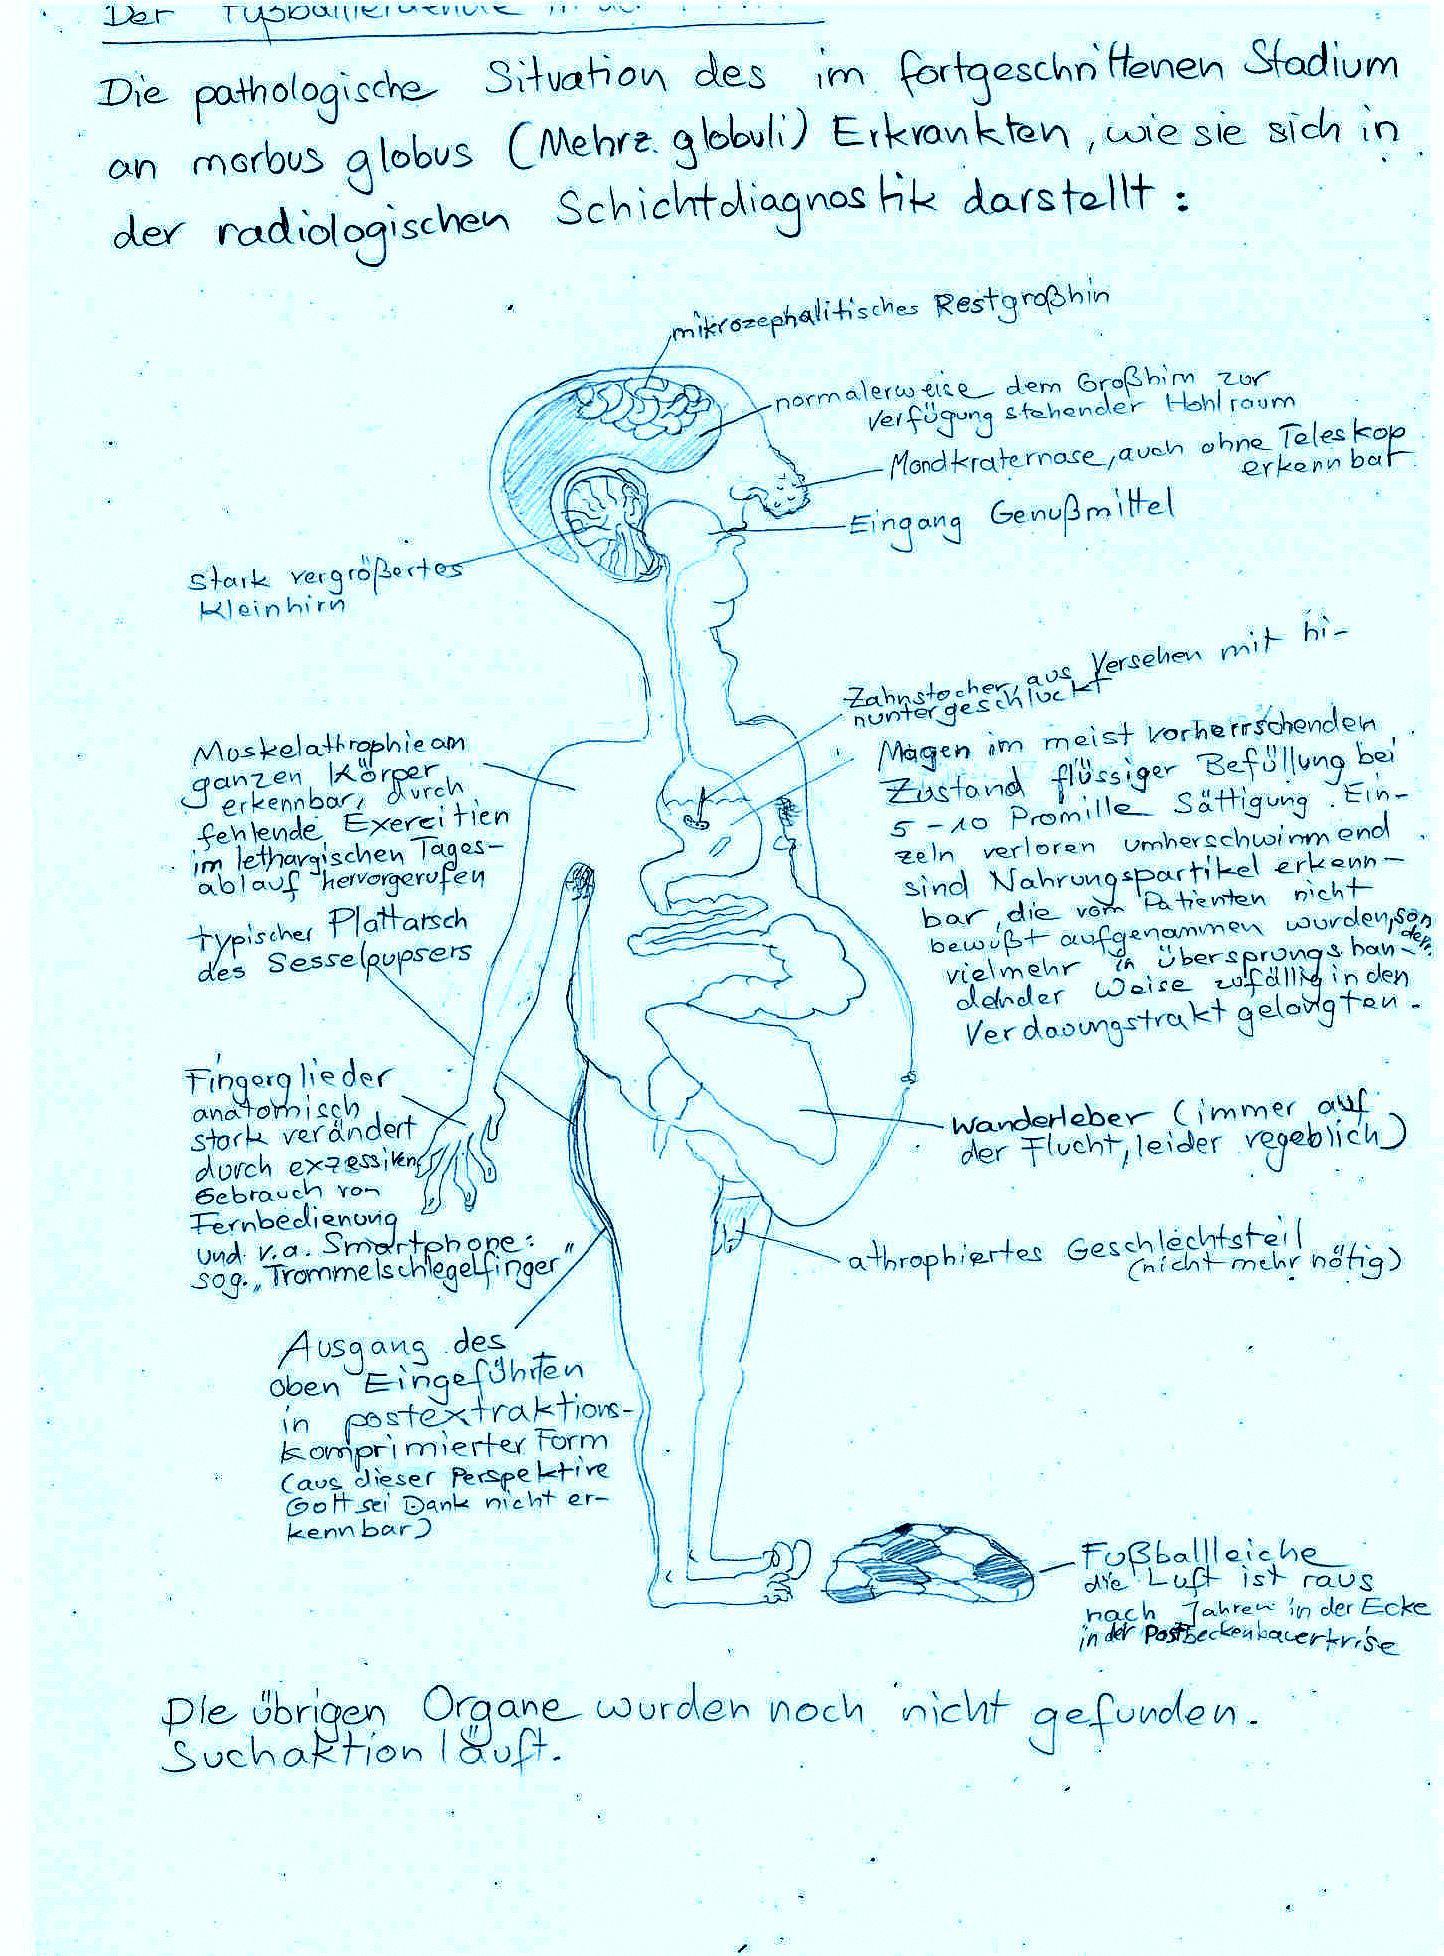 Der
Die pathologische Situation des im fortgeschrittenen Stadium
an morbus globus (Mehrz. globuli) Erkrankten, wie sie sich in
der radiologischen Schichtdiagnostik darstellt:
mikrozephalitisches Restgroßhin
normalerweise dem Großhirn zur
Verfügung stehender Hohlraum
Mondkraternase, auch ohne Teleskop
erkennbar
Eingang Genußmittel
stark vergrößertes
Kleinhirn
Zahnstocher, aus Versehen mit hi-
nuntergeschluckt
Magen im meist vorherrschenden
Zustand flüssiger Befüllung bei
5-10 Promille Sättigung. Ein-
zeln verloren umherschwimmend
sind Nahrungspartikel erkenn-
bar, die vom Patienten nicht
bewußt aufgenommen wurden, sondern
vielmehr in übersprungshan-
delnder Weise zufällig in den
Verdauungstrakt gelangten.
Muskelathrophie am
ganzen Körper
erkennbar, durch
fehlende Exercitien
im lethargischen Tages-
ablauf hervorgerufen
typischer Plattarsch
des Sesselpupsers
Fingerglieder
anatomisch
stark verändert
durch exzessiven
Gebrauch von
Fernbedienung
und v.a. Smartphone:
sog. „Trommelschlegelfinger"
Wanderleber (immer auf
der Flucht, leider vegeblich)
athrophiertes Geschlechtsteil
(nicht mehr nötig)
Ausgang des
oben Eingeführten
in postextraktions-
komprimierter Form
(aus dieser Perspektive
Gott sei Dank nicht er-
kennbar)
Fußballleiche
die Luft ist raus
nach Jahren in der Ecke
in der Postbeckenbauerkrise
Die übrigen Organe wurden noch nicht gefunden.
Suchaktion läuft.